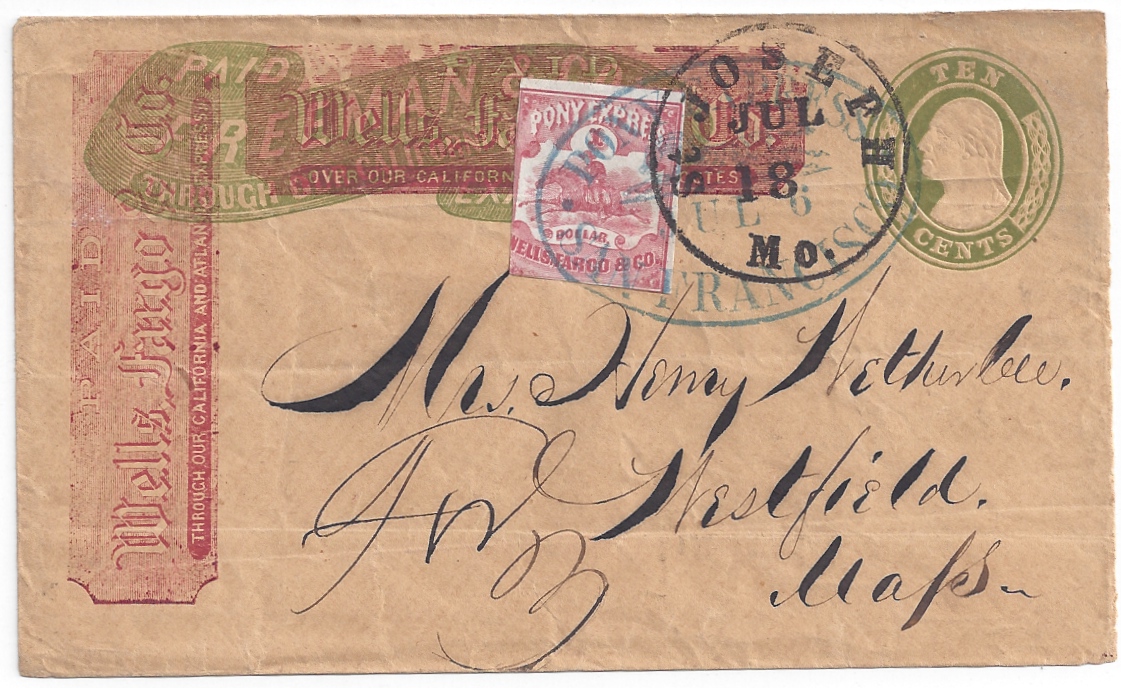 PAID
Wells, Fargo & Co.
OVER OUR CALIFORN
TES
PAID
Wells, Fargo Co.
THROUGH OUR CALIFORNIA AND ATLAN EXPRESS
PAID
THROUGH OUR
PONY EXPRESS
DOLLAR.
WELLS, FARGO & CO.
PONY EXPRESS
JUL 6
SAN FRANCISCO
ST JOSEPH
JUL
18
MO.
TEN
CENTS
Mrs. Henry Wetherbee.
Westfield.
Mass